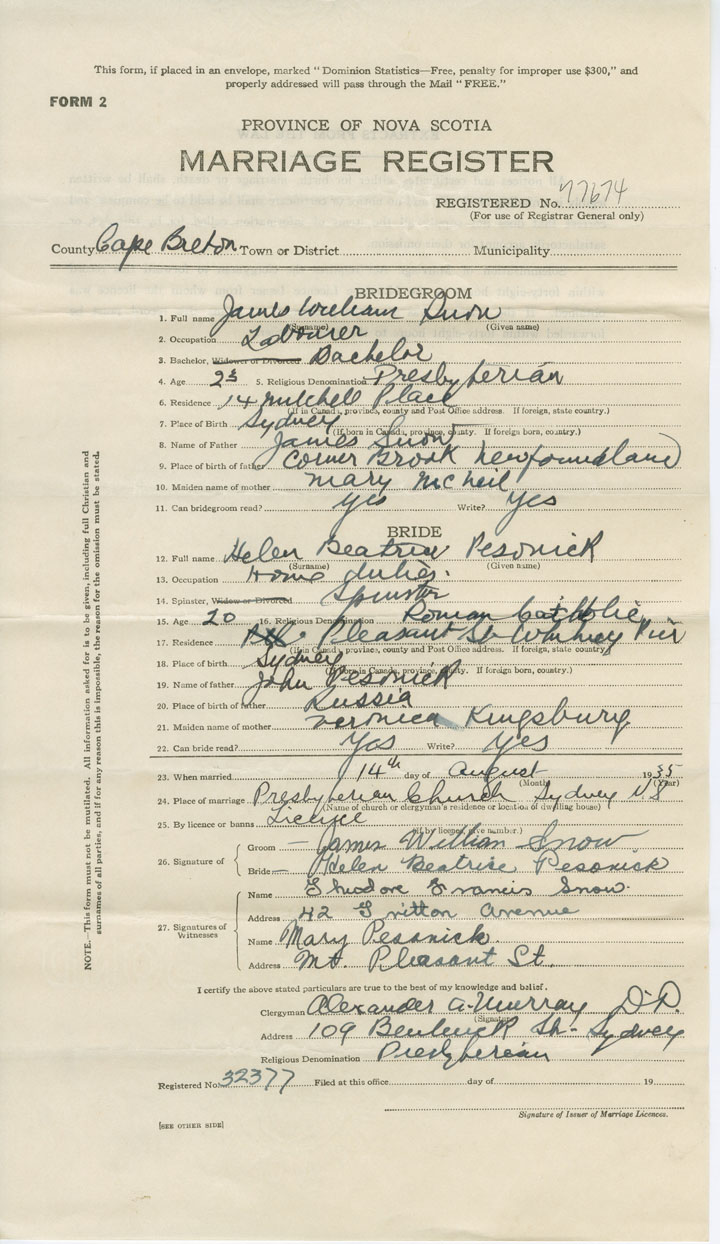 This form, if placed in an envelope, marked "Dominion Statistics—Free, penalty for improper use $300," and
properly addressed will pass through the Mail "FREE."
FORM 2
PROVINCE OF NOVA SCOTIA
MARRIAGE REGISTER
REGISTERED No. 77674
(For use of Registrar General only)
County Cape Breton Town or District Municipality
BRIDEGROOM
1. Full name James William Snow
(Surname) (Given name)
2. Occupation Labourer
3. Bachelor, Widower or Divorced Bachelor
4. Age 23 5. Religious Denomination Presbyterian
6. Residence 14 Mitchell Place
(If in Canada, province, county and Post Office address. If foreign, state country.)
7. Place of Birth Sydney
(If born in Canada, province, county. If foreign born, country.)
8. Name of Father James Snow
9. Place of birth of father Corner Brook Newfoundland
10. Maiden name of mother Mary McNeil
11. Can bridegroom read? yes Write? Yes
BRIDE
12. Full name Helen Beatrice Pesonick
(Surname) (Given name)
13. Occupation Home duties.
14. Spinster, Widow or Divorced Spinster
15. Age 20 16. Religious Denomination Roman Catholic
17. Residence Pleasant St Whitney Pier
(If in Canada, province, county and Post Office address. If foreign, state country)
18. Place of birth Sydney
(If born in Canada, province, county. If foreign born, country.)
19. Name of father John Pesonick
20. Place of birth of father Russia
21. Maiden name of mother Veronica Kingsbury
22. Can bride read? Yes Write? Yes
23. When married 14th day of August 1935
(Month) (Year)
24. Place of marriage Presbyterian Church Sydney NS
(Name of church or clergyman's residence or location of dwelling house)
25. By licence or banns Licence
(If by licence, give number.)
26. Signature of
Groom — James William Snow
Bride — Helen Beatrice Pesonick
27. Signatures of Witnesses
Name Theodore Francis Snow
Address 42 Avenue
Name Mary Pesonick.
Address Mt. Pleasant St.
I certify the above stated particulars are true to the best of my knowledge and belief.
Clergyman Alexander A. Murray D.D.
(Signature)
Address 109 Bentinck St. Sydney
Religious Denomination Presbyterian
Registered No. 32377 Filed at this office day of 19
Signature of Issuer of Marriage Licences.
[SEE OTHER SIDE]
NOTE.—This form must not be mutilated. All information asked for is to be given, including full Christian and
surnames of all parties, and if for any reason this is impossible, the reason for the omission must be stated.